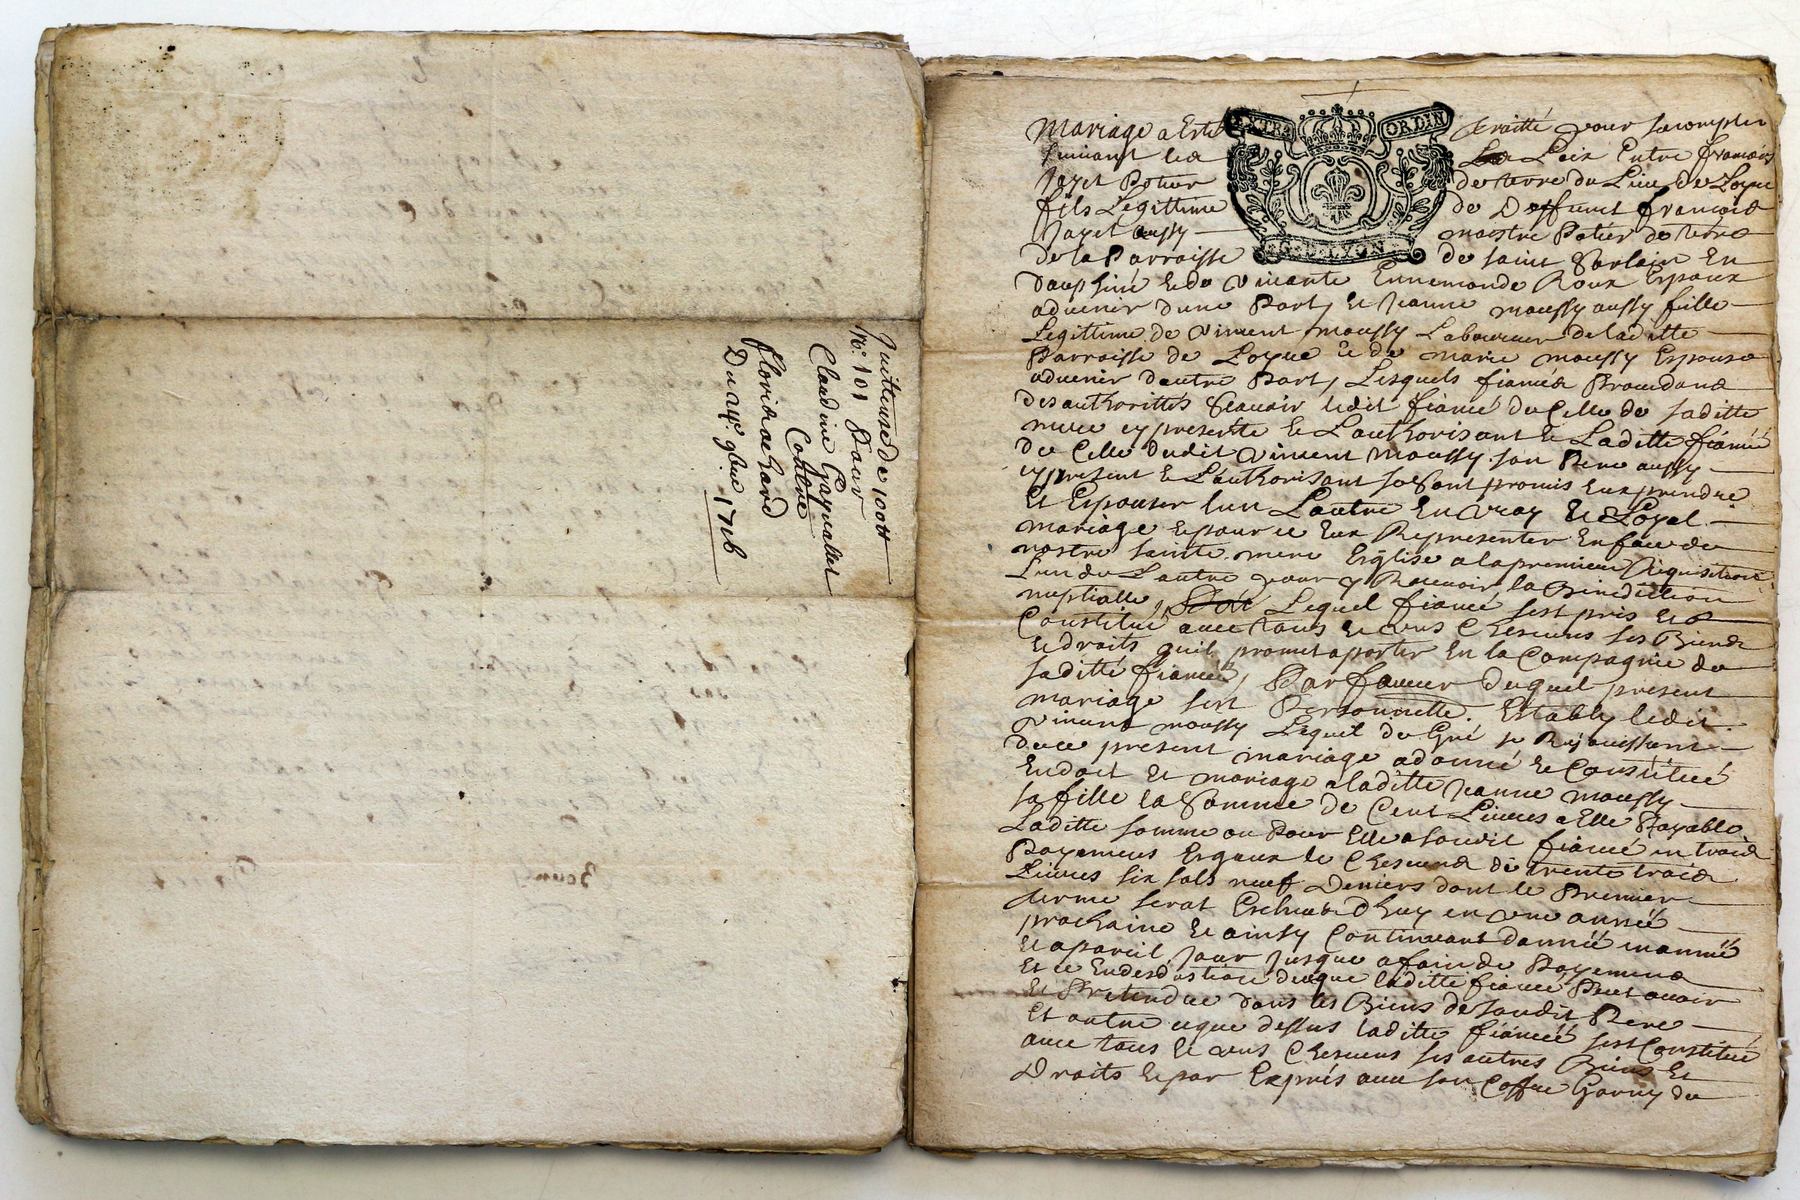 quittance de 100tt
N.º 101 Pour
Claudine Gayvallet
Contre
floris achard
Du 24e 9bre 1716
Mariage a Esté traitté pour sacomplir
suivant les Loix Entre francois
Potier de terre du Lieu de Loyee
fils Legittime de Deffunct francois
aussy maistre Potier de terre
de la Parroisse de saint Sorlain En
Dauphiné et de vivante Ennemonde Roux Espoux
advenir dune Part, et Jeanne moussy aussy fille
Legittime de vincent moussy Laboureur de laditte
Parroisse de Loyee et de marie moussy Espouse
advenir dautre Part, Lesquels fiancés Procedans
des authorittés scavoir ledit fiancé de Celle de saditte
mere cy presente et Lauthorisant et Laditte fiancée
de Celle dudit vincent moussy son Pere aussy
cy present et Lauthorisant se sont promis Eux prendre
Et Espouser lun Lautre En vray et Loyal
mariage et pour ce Eux Representer En face de
nostre sainte mere Esglise a la premiere Requisition
Lun de Lautre pour y Recevoir la Benediction
nuptialle, Lequel fiancé sest pris et
Constitué avec tous et uns Chescuns ses Biens
et droits quil promet aporter En la Compagnie de
saditte fiancée, Par faveur duquel present
mariage sest Personnelle. Estably ledit
vincent moussy Lequel de Gré se Rejouissant
de ce present mariage a donné et Constitué
En dot et mariage a laditte Jeanne moussy
sa fille la Somme de Cent Livres a Elle Payable
Laditte somme ou Pour Elle a sondit fiancé en trois
Payemens Esgaux de Chescuns de trente trois
Livres six sols neuf Deniers dont le Premier
terme serat Escheub dhuy en une année
prochaine et ainsy Continuant dannée en année
et a pareil Jour jusque a fin de Payemens
Et ce laditte fiancée Peut avoir
Et Pretendre dans les Biens de sondit Pere
Et outre ce que dessus laditte fiancée sest Constitué
avec tous et uns Chescuns ses autres Biens et
Droits et par Exprés avec son Coffre Garny de
EXTRA ORDIN
G. D. LYON